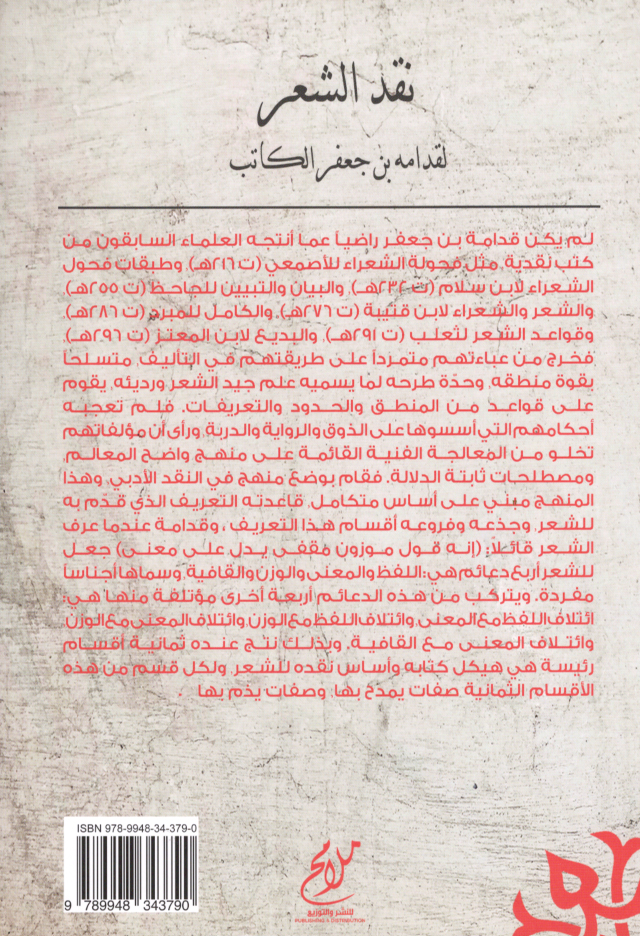 نقد الشعر
لقدامه بن جعفر الكاتب
لم يكن قدامة بن جعفر راضياً عما أنتجه العلماء السابقون من
كتب نقدية، مثل فحولة الشعراء للأصمعي (ت ٢١٦هـ)، وطبقات فحول
الشعراء لابن سلام (ت ٢٣٢هـ)، والبيان والتبيين للجاحظ (ت ٢٥٥هـ)،
والشعر والشعراء لابن قتيبة (ت ٢٧٦هـ)، والكامل للمبرد (ت ٢٨٦هـ)،
وقواعد الشعر لثعلب (ت ٢٩١هـ)، والبديع لابن المعتز (ت ٢٩٦هـ)،
فخرج من عباءتهم متمرداً على طريقتهم في التأليف، متسلحاً
بقوة منطقه، وحدّة طرحه لما يسميه علم جيد الشعر ورديئه، يقوم
على قواعد من المنطق والحدود والتعريفات، فلم تعجبه
أحكامهم التي أسسوها على الذوق والرواية والدربة، ورأى أن مؤلفاتهم
تخلو من المعالجة الفنية القائمة على منهج واضح المعالم،
ومصطلحات ثابتة الدلالة. فقام بوضع منهج في النقد الأدبي، وهذا
المنهج مبني على أساس متكامل، قاعدته التعريف الذي قدّم به
للشعر، وجذعه وفروعه أقسام هذا التعريف ، وقدامة عندما عرف
الشعر قائلاً: (إنه قول موزون مقفى يدل على معنى) جعل
للشعر أربع دعائم هي: اللفظ والمعنى والوزن والقافية، وسماها أجناساً
مفردة. ويتركب من هذه الدعائم أربعة أخرى مؤتلفة منها هي:
ائتلاف اللفظ مع المعنى، وائتلاف اللفظ مع الوزن، وائتلاف المعنى مع الوزن،
وائتلاف المعنى مع القافية، وبذلك نتج عنده ثمانية أقسام
رئيسة هي هيكل كتابه وأساس نقده للشعر، ولكل قسم من هذه
الأقسام الثمانية صفات يمدح بها، وصفات يذم بها.
ISBN 978-9948-34-379-0
9 789948 343790
ملامح
للنشر والتوزيع
PUBLISHING & DISTRIBUTION